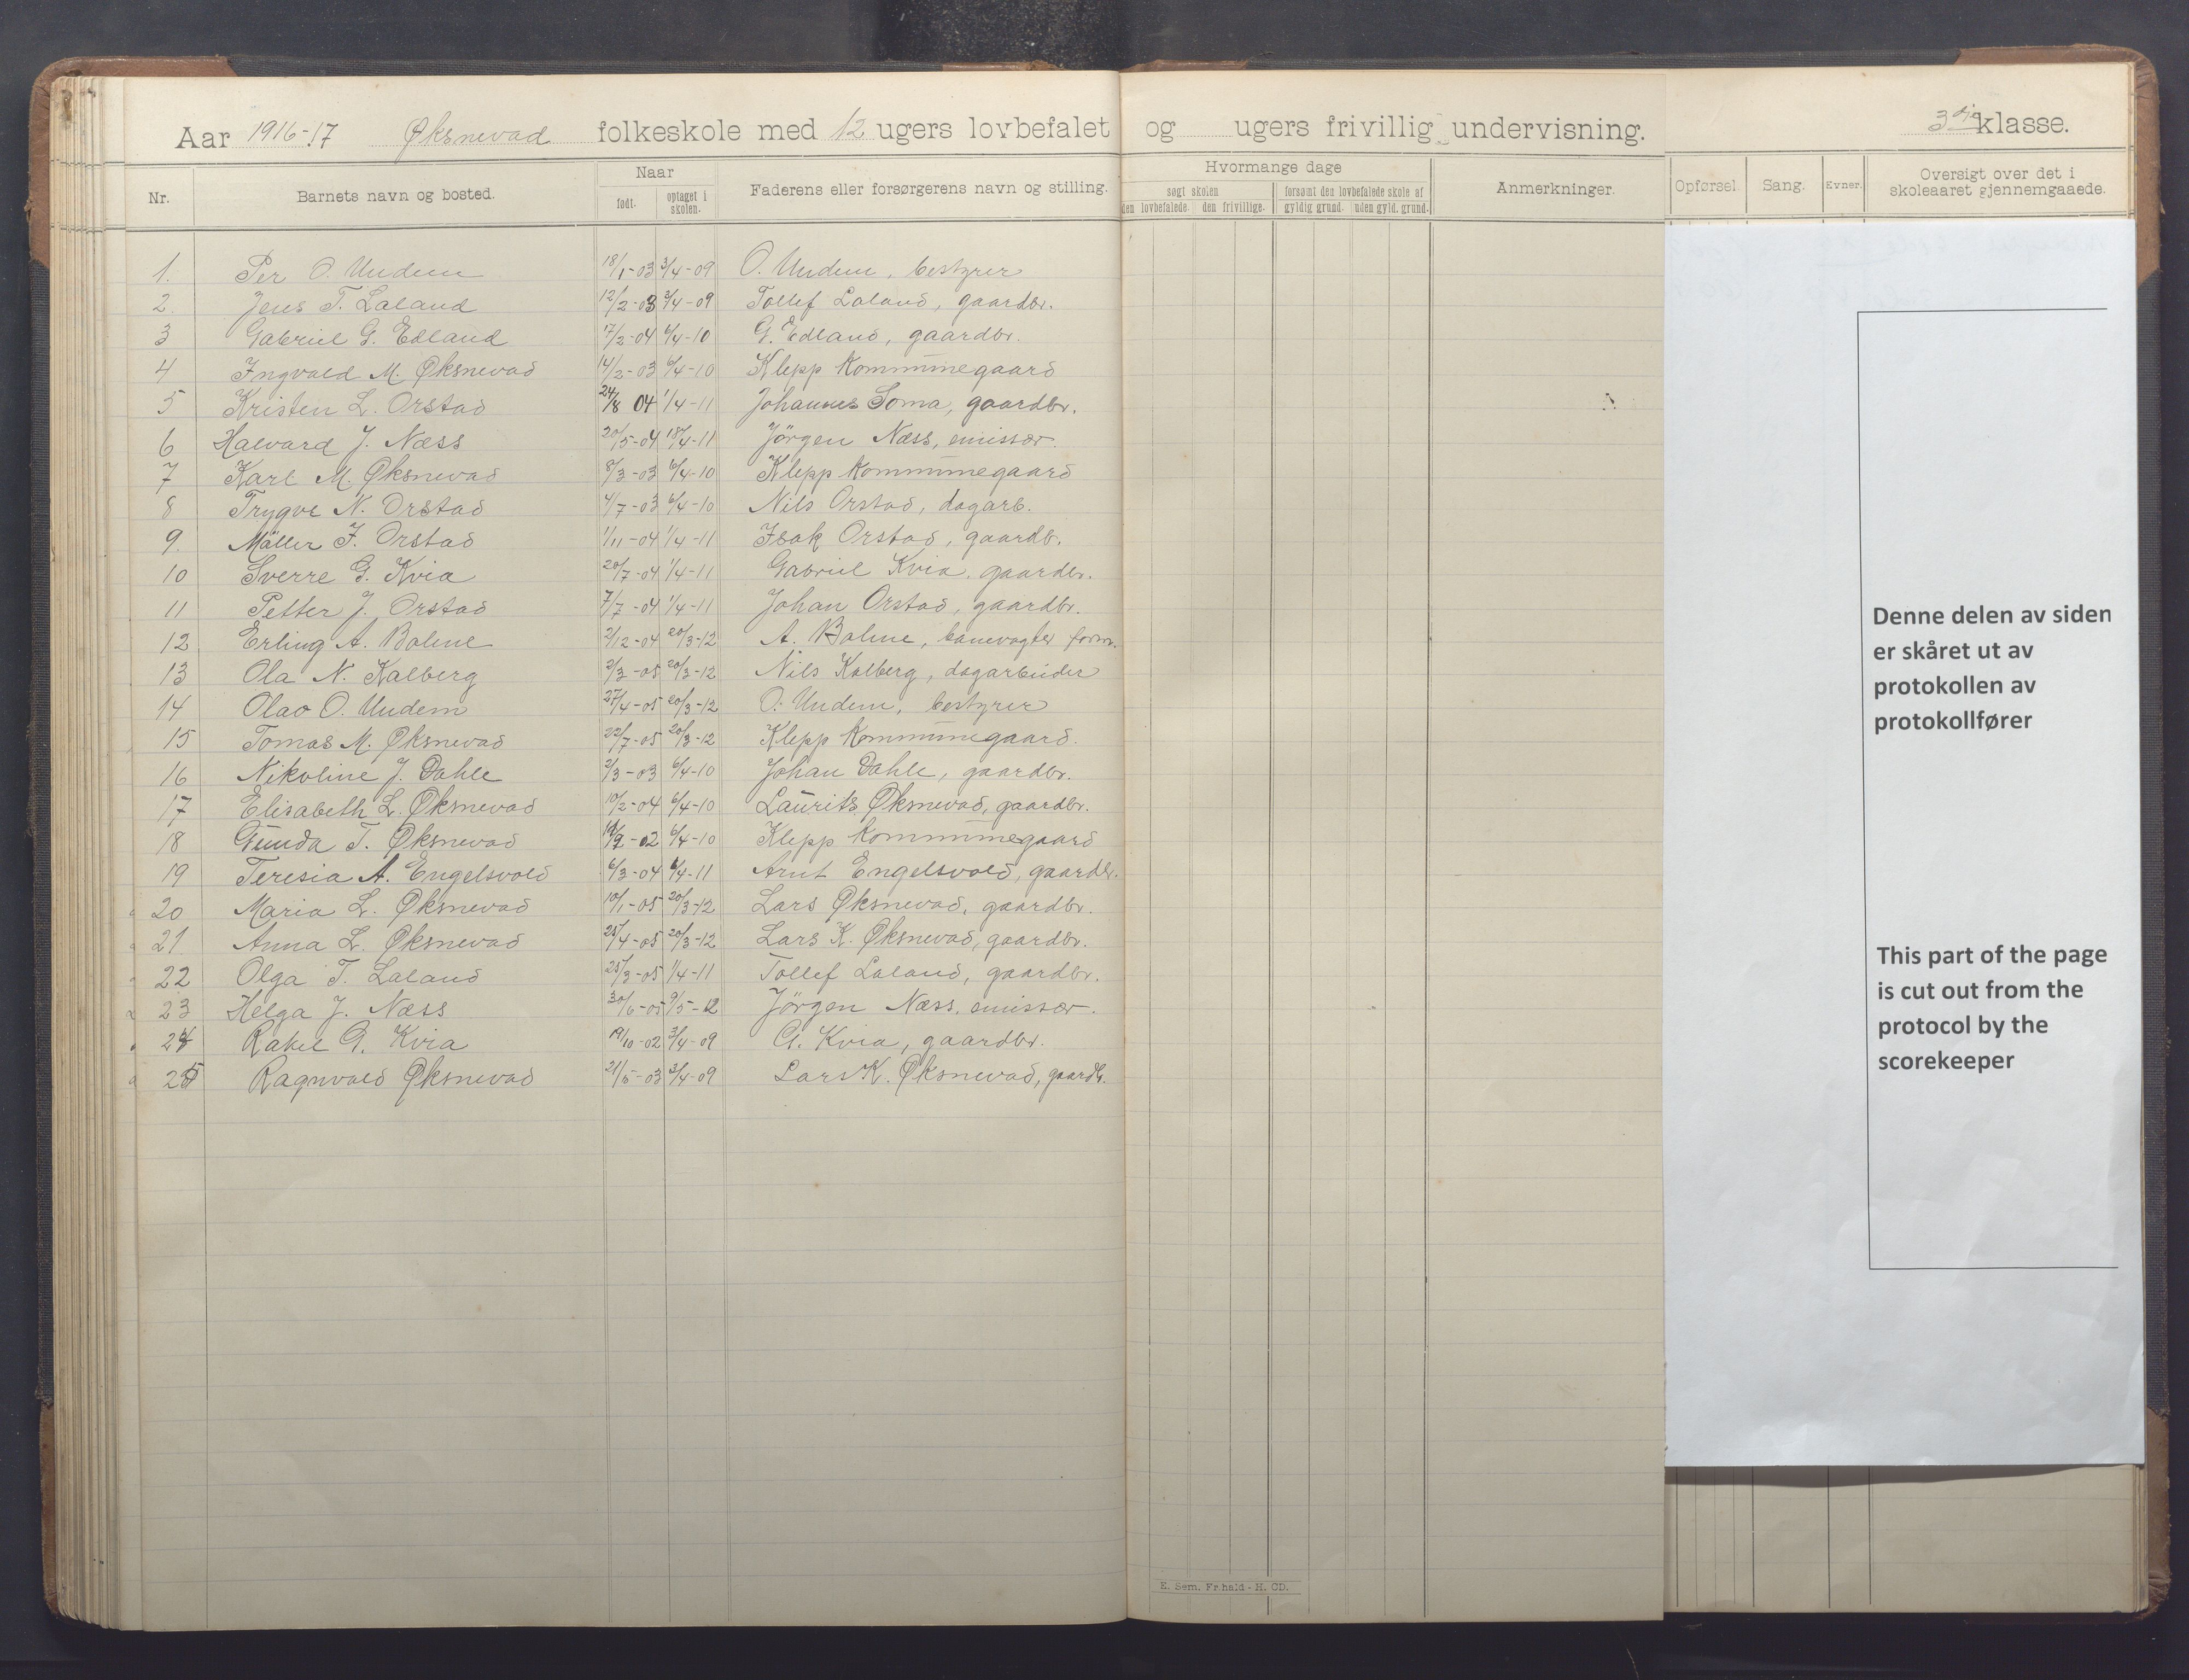 Aar 1916-17 Øksnevad folkeskole med 12 ugers lovbefalet og ugers frivillig undervisning. 3die klasse.
Nr. Barnets navn og bosted. Naar født. optaget i skolen. Faderens eller forsørgerens navn og stilling. Hvormange dage søgt skolen den lovbefalede. den frivillige. forsømt den lovbefalede skole af gyldig grund. uden gyld. grund. Anmerkninger. Opførsel. Sang. Evner. Oversigt over det i skoleaaret gjennemgaaede.
1. Per O. Undem 18/1-03 3/4-09 O. Undem, bestyrer
2 Jens T. Laland 12/2-03 3/4-09 Tollef Laland, gaardbr.
3 Gabriel G. Edland 17/2-04 6/4-10 G. Edland, gaardbr.
4 Ingvald M. Øksnevad 14/2-03 6/4-10 Klepp kommunegaard
5 Kristen L. Orstad 24/8 04 1/4-11 Johannes Soma, gaardbr.
6 Halvard J. Næss 20/5-04 18/4-11 Jörgen Næss, emissær
7 Karl M. Øksnevad 8/3-03 6/4-10 Klepp kommunegaard
8 Trygve N. Orstad 4/7-03 6/4-10 Nils Orstad, dagarb.
9. Möller I. Orstad 1/11-04 1/4-11 Isak Orstad, gaardb.
10 Sverre G. Kvia 20/7-04 1/4-11 Gabriel Kvia, gaardbr.
11 Petter J. Orstad 7/7-04 1/4-11 Johan Orstad, gaardbr.
12 Erling A. Bolme 2/12-04 20/3-12 A. Bolme, banevogter form.
13 Ola N. Kalberg 2/3-05 20/3-12 Nils Kalberg, dagarbeider
14 Olav O. Undem 27/4-05 20/3-12 O. Undem, bestyrer
15 Tomas M. Øksnevad 22/7-05 20/3-12 Klepp kommunegaard.
16 Nikoline J. Dahle 2/3-03 6/4-10 Johan Dahle, gaardbr.
17 Elisabeth L. Øksnevad 10/2-04 6/4-10 Laurits Øksnevad, gaardbr.
18 Gunda T. Øksnevad -02 6/4-10 Klepp kommunegaard
19 Teresia A. Engelsvold 6/3-04 6/4-11 Arnt Engelsvold, gaardbr.
20 Maria L. Øksnevad 10/1-05 20/3-12 Lars Øksnevad, gaardbr.
21 Anna L. Øksnevad 25/4-05 20/3-12 Lars K. Øksnevad, gaardbr.
22 Olga T. Laland 25/3-05 1/4-11 Tollef Laland, gaardbr.
23 Helga J. Næss 30/6-05 9/5-12 Jörgen Næss, emissær.
24 Rakel G. Kvia 19/10-02 3/4-09 G. Kvia, gaardbr.
25 Ragnvald Øksnevad 21/5-03 3/4-09 Lars K. Øksnevad, gaardb.
Denne delen av siden
er skåret ut av
protokollen av
protokollfører
This part of the page
is cut out from the
protocol by the
scorekeeper
E. Sem, Fr.hald - H. CD.